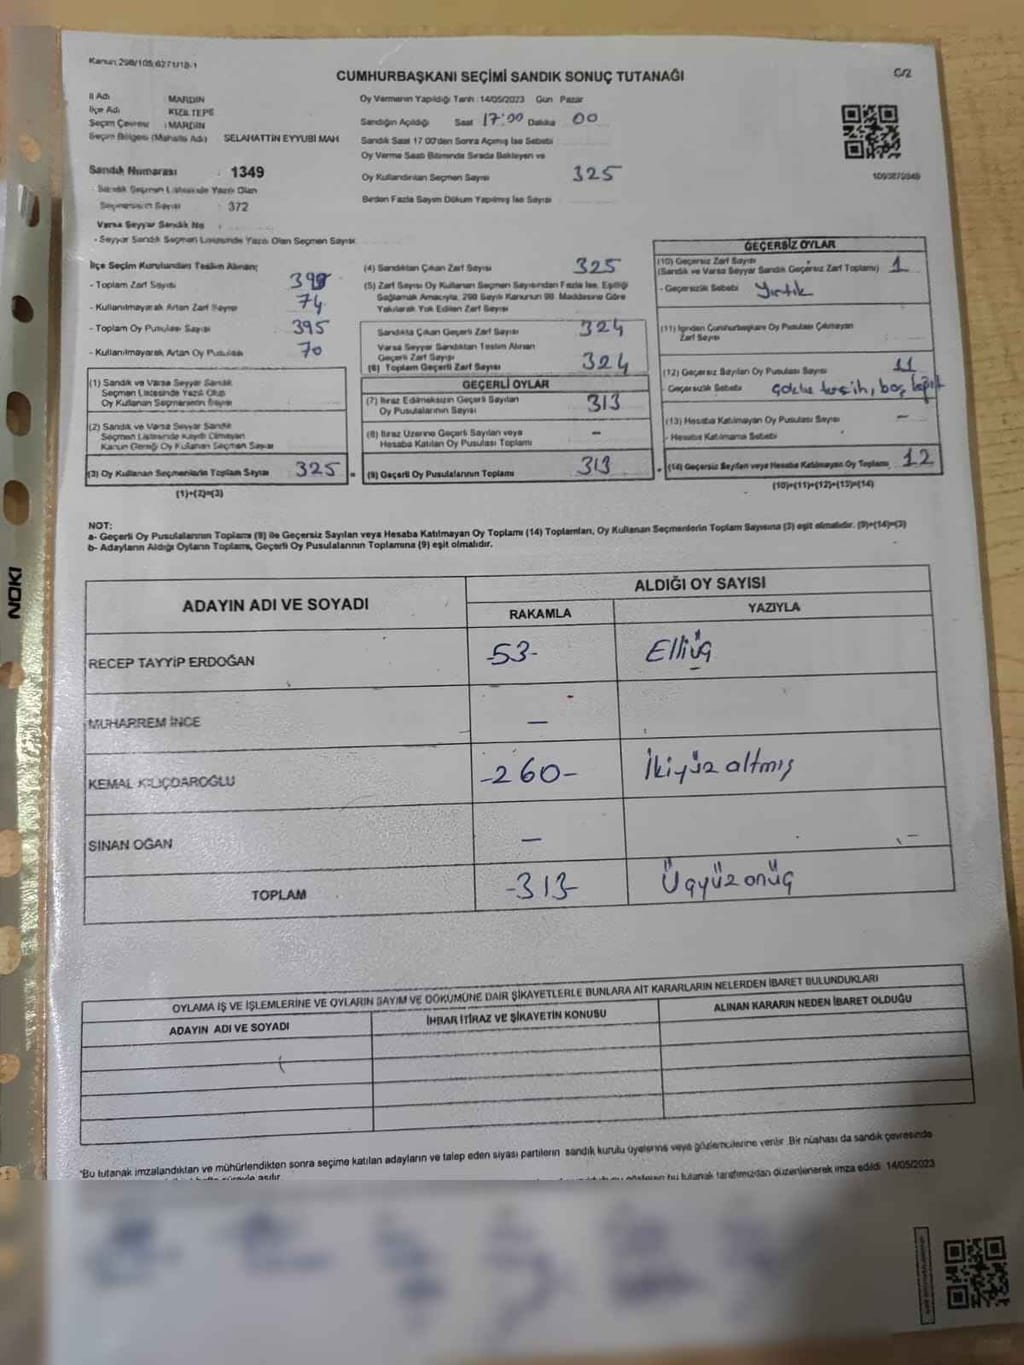 Kanun:298/105,6271/18-1
C/2
CUMHURBAŞKANI SEÇİMİ SANDIK SONUÇ TUTANAĞI
İl Adı : MARDİN
İlçe Adı KIZILTEPE
Seçim Çevresi : MARDİN
Seçim Bölgesi (Mahalle Adı) SELAHATTİN EYYUBİ MAH
Sandık Numarası : 1349
Sandık Seçmen Listesinde Yazılı Olan
Seçmenlerin Sayısı : 372
Varsa Seyyar Sandık No
- Seyyar Sandık Seçmen Listesinde Yazılı Olan Seçmen Sayısı
Oy Vermenin Yapıldığı Tarih :14/05/2023 Gün Pazar
Sandığın Açıldığı Saat 17:00 Dakika 00
Sandık Saat 17 00'den Sonra Açılmış İse Sebebi
Oy Verme Saati Bitiminde Sırada Bekleyen ve
Oy Kullandırılan Seçmen Sayısı 325
Birden Fazla Sayım Döküm Yapılmış İse Sayısı
İlçe Seçim Kurulundan Teslim Alınan;
- Toplam Zarf Sayısı
- Kullanılmayarak Artan Zarf Sayısı 74
- Toplam Oy Pusulası Sayısı 395
- Kullanılmayarak Artan Oy Pusulası 70
(1) Sandık ve Varsa Seyyar Sandık
Seçmen Listesinde Yazılı Olup
Oy Kullanan Seçmenlerin Sayısı
(2) Sandık ve Varsa Seyyar Sandık
Seçmen Listesinde Kayıtlı Olmayan
Kanun Gereği Oy Kullanan Seçmen Sayısı
(3) Oy Kullanan Seçmenlerin Toplam Sayısı 325 =
(1)+(2)=(3)
(4) Sandıktan Çıkan Zarf Sayısı 325
(5) Zarf Sayısı Oy Kullanan Seçmen Sayısından Fazla İse, Eşitliği
Sağlamak Amacıyla, 298 Sayılı Kanunun 98. Maddesine Göre
Yakılarak Yok Edilen Zarf Sayısı
Sandıkta Çıkan Geçerli Zarf Sayısı 324
Varsa Seyyar Sandıktan Teslim Alınan
Geçerli Zarf Sayısı
(6) Toplam Geçerli Zarf Sayısı 324
GEÇERLİ OYLAR
(7) İtiraz Edilmeksizin Geçerli Sayılan
Oy Pusulalarının Sayısı 313
(8) İtiraz Üzerine Geçerli Sayılan veya
Hesaba Katılan Oy Pusulası Toplamı –
(9) Geçerli Oy Pusulalarının Toplamı 313
GEÇERSİZ OYLAR
(10) Geçersiz Zarf Sayısı
(Sandık ve Varsa Seyyar Sandık Geçersiz Zarf Toplamı) 1
- Geçersizlik Sebebi Yırtık
(11) İçinden Cumhurbaşkanı Oy Pusulası Çıkmayan
Zarf Sayısı
(12) Geçersiz Sayılan Oy Pusulası Sayısı 11
- Geçersizlik Sebebi
(13) Hesaba Katılmayan Oy Pusulası Sayısı –
- Hesaba Katılmama Sebebi
(14) Geçersiz Sayılan veya Hesaba Katılmayan Oy Toplamı 12
(10)+(11)+(12)+(13)=(14)
NOT:
a- Geçerli Oy Pusulalarının Toplamı (9) ile Geçersiz Sayılan veya Hesaba Katılmayan Oy Toplamı (14) Toplamları, Oy Kullanan Seçmenlerin Toplam Sayısına (3) eşit olmalıdır. (9)+(14)=(3)
b- Adayların Aldığı Oyların Toplamı, Geçerli Oy Pusulalarının Toplamına (9) eşit olmalıdır.
ADAYIN ADI VE SOYADI
ALDIĞI OY SAYISI
RAKAMLA YAZIYLA
RECEP TAYYİP ERDOĞAN -53- Elliüç
MUHARREM İNCE –
KEMAL KILIÇDAROĞLU -260- İkiyüz altmış
SİNAN OĞAN –
TOPLAM -313- Üçyüz onüç
OYLAMA İŞ VE İŞLEMLERİNE VE OYLARIN SAYIM VE DÖKÜMÜNE DAİR ŞİKAYETLERLE BUNLARA AİT KARARLARIN NELERDEN İBARET BULUNDUKLARI
ADAYIN ADI VE SOYADI İHBAR İTİRAZ VE ŞİKAYETİN KONUSU ALINAN KARARIN NEDEN İBARET OLDUĞU
*Bu tutanak imzalandıktan ve mühürlendikten sonra seçime katılan adayların ve talep eden siyasi partilerin sandık kurulu üyelerine veya gözlemcilerine verilir. Bir nüshası da sandık çevresinde
bu tutanak tarafımızdan düzenlenerek imza edildi. 14/05/2023
NOKI